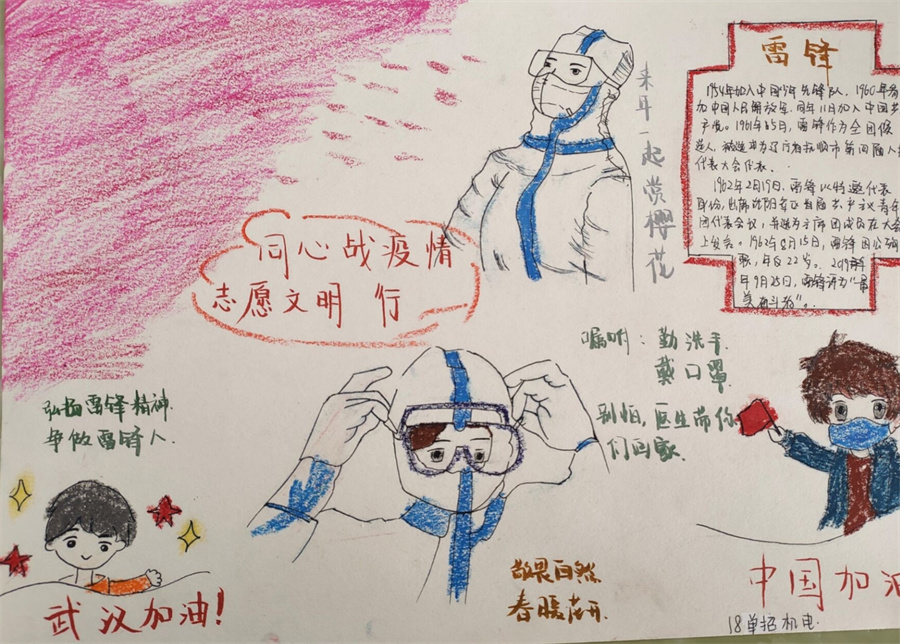 雷锋
1954年加入中国少年先锋队,1960年参
加中国人民解放军.同年11月加入中国共
产党。1961年5月,雷锋作为全团候
选人,被选举为辽宁省抚顺市第四届人
代表大会代表.
1962年2月19日.雷锋以特邀代表
身份,出席沈阳军区首届共产主义青年
团代表会议,并被为主席团成员在大会
上发言。1962年8月15日,雷锋因公殉
职,年仅22岁。2019
年9月25日,雷锋评为"最
美奋斗者"。
来年一起赏樱花
同心战疫情
志愿文明 行
嘱咐:勤洗手.
戴口罩.
别怕,医生带你
们回家.
弘扬雷锋精神.
争做雷锋人.
敬畏自然
春暖花开.
武汉加油!
中国加油
18单招机电